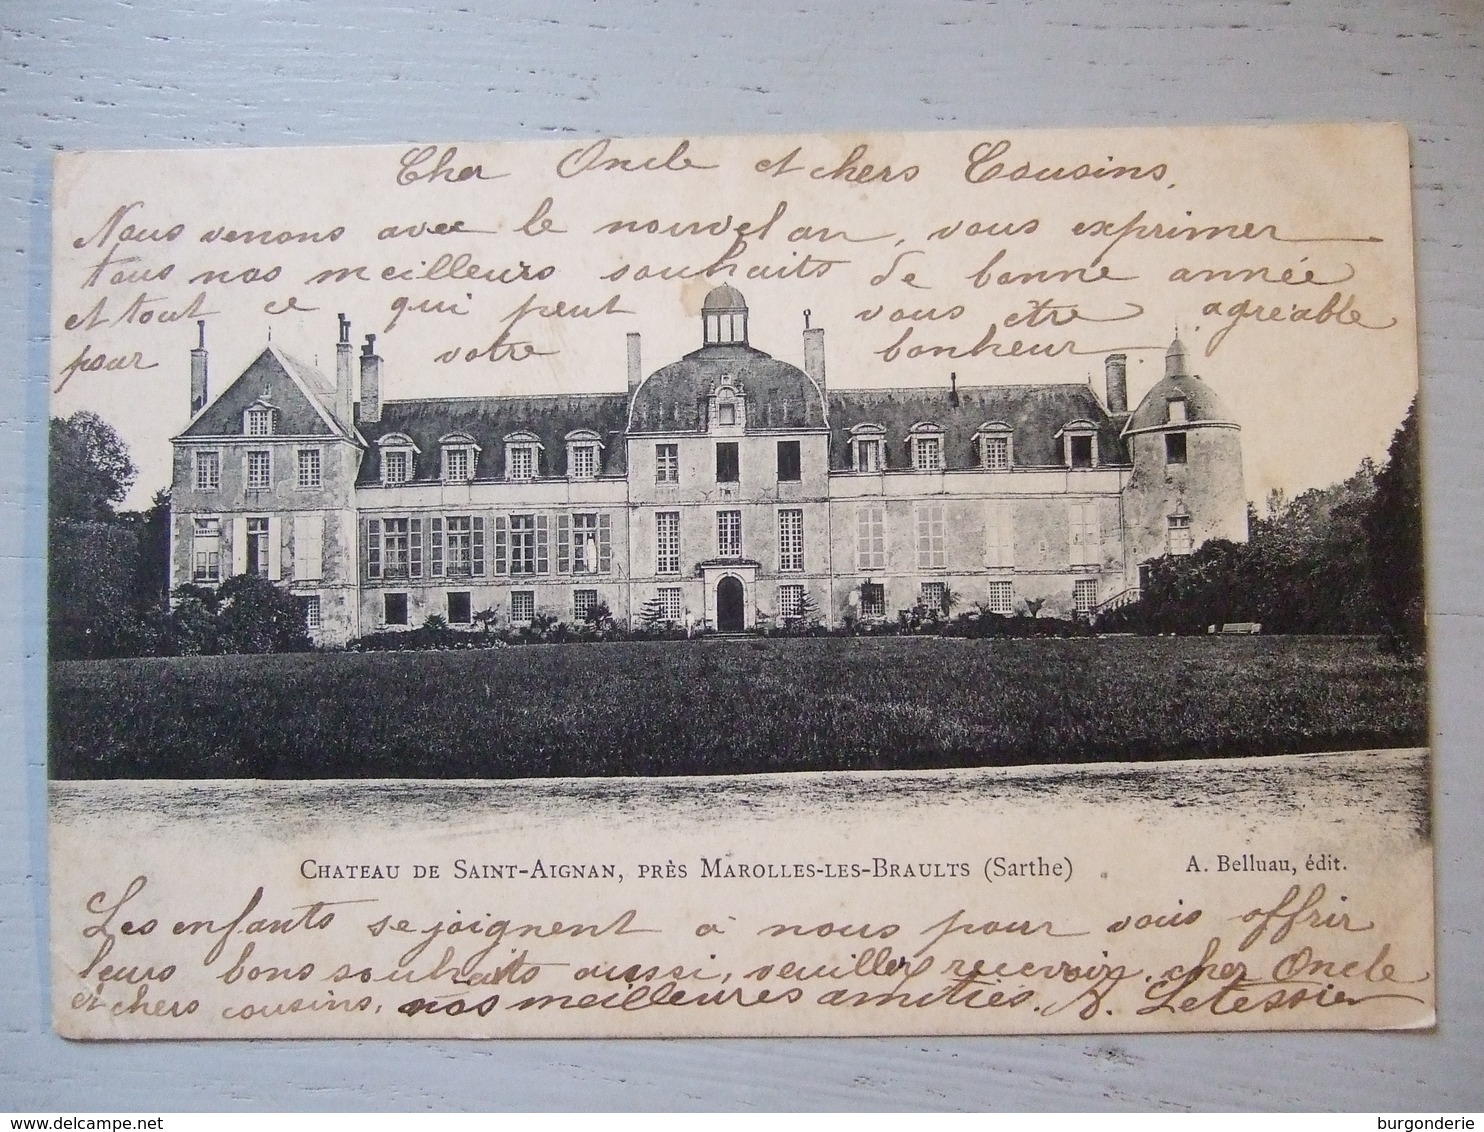 Cher Oncle et chers Cousins,
Nous venons avec le nouvel an, vous exprimer
tous nos meilleurs souhaits de bonne année
et tout ce qui peut vous être agréable
pour votre bonheur
CHATEAU DE SAINT-AIGNAN, PRÈS MAROLLES-LES-BRAULTS (Sarthe)
A. Belluau, édit.
Les enfants se joignent à nous pour vous offrir
leurs bons souhaits aussi, veuillez recevoir, cher Oncle
et chers cousins, nos meilleures amitiés. A. Letessier
delcampe.net
burgonderie